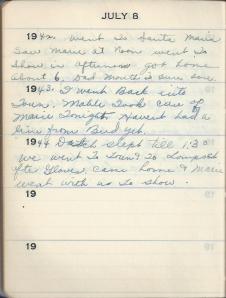 JULY 8
1942. Went to Santa Maria
Saw Marie at Noon went to
Show in afternoon got home
about 6. Dad mouth is sure sore.
1943. I went Back into
Town. Mable Took care of
Marie Tonight. Havent had a
line from Bud yet.
1944 Dutch slept till 1:30
we went To Town & To Lompoc
after Gloves, came home & Marie
went with us to show.
19
19